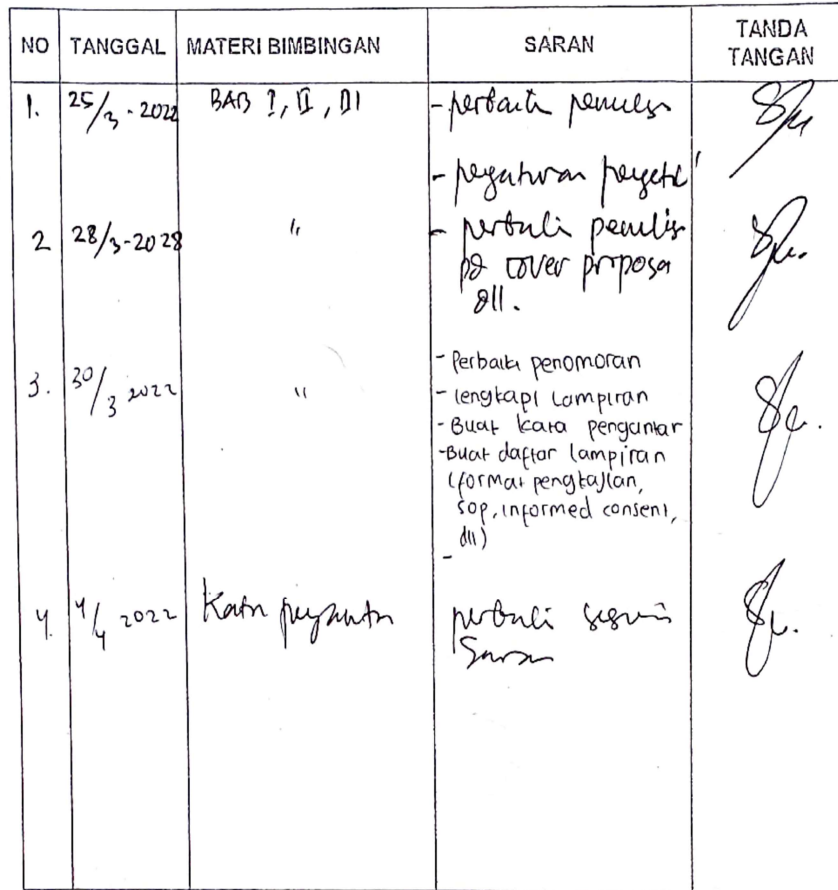 NO TANGGAL MATERI BIMBINGAN SARAN TANDA TANGAN
1. 25/3-2022 BAB I, II, III - perbaiki
- pengaturan
2 28/3-2028 " - perbaiki
pd cover proposa
dll.
3. 30/3 2022 " - Perbaiki penomoran
- lengkapi Lampiran
- Buat kata pengantar
- Buat daftar lampiran
(format pengkajian,
sop, informed consent,
dll)
-
4. 4/4 2022 Kata pengantar perbaiki sesuai
Saran